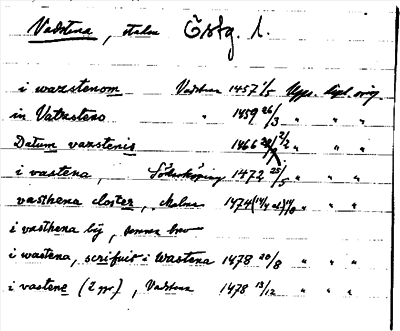 Vadstena, staden Östg. l.
i wazstenom Vadstena 1457 1/5 Upps. dipl. orig.
in Vatzsteno " 1459 26/3 " " "
Datum vazstenis 1466 " " "
i vastena, Söderköping 1472 25/5 " " "
vasthena closter, Malmö 1474 " " "
i vasthena by, samma brev
i wastena, scrifuit i wastena 1478 20/8 " " "
i vastene (2 ggr), Vadstena 1478 13/12 " " "